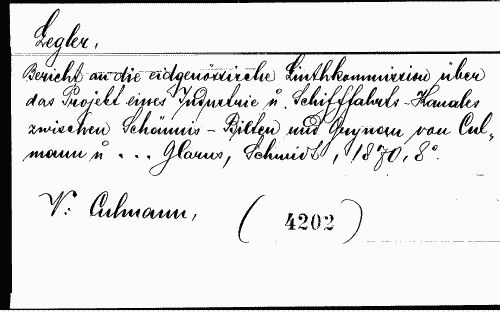 Legler,
Bericht an die eidgenössische Linthkommission über
das Projekt eines Industrie u. Schifffahrts-Kanales
zwischen Schännis - Bilten und Grynau von Cul-
mann u ... Glarus, Schmidt, 1870, 8°.
V: Culmann,
(4202)